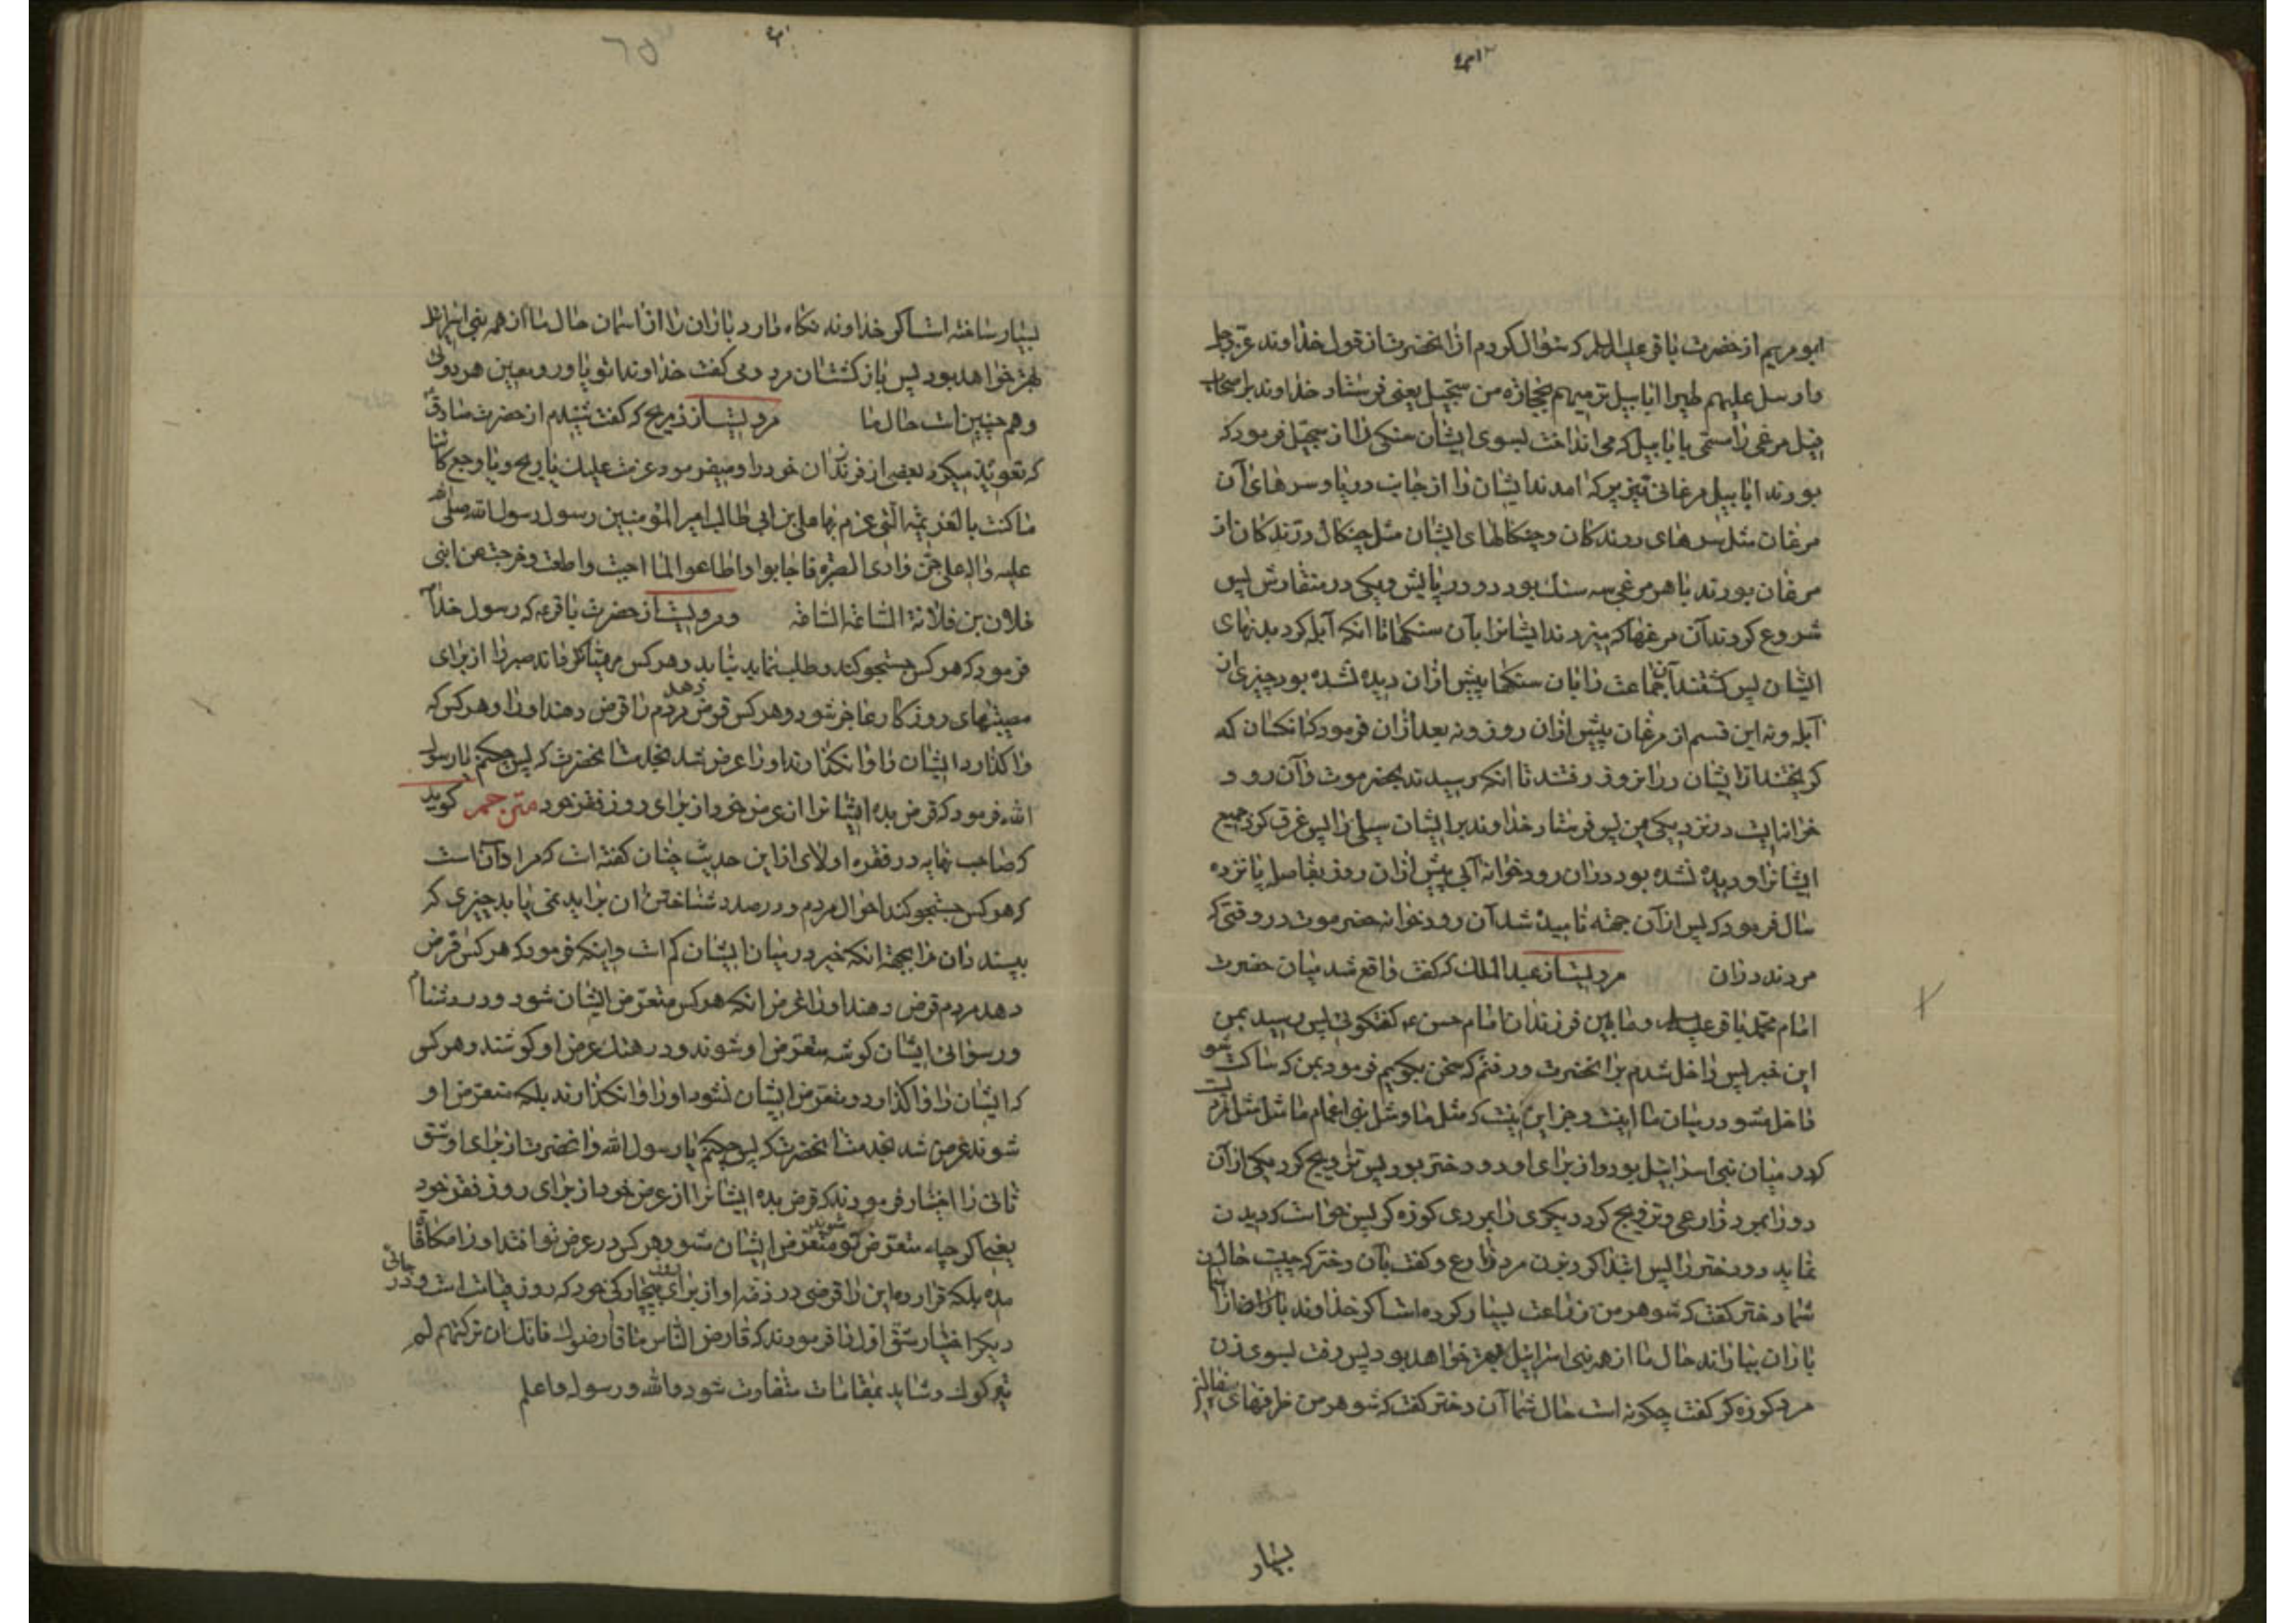 ابو مریم از حضرت باقر علیه السلم که سؤال کردم از انحضرت از قول خداوند عزّ وجل
وارسل علیهم طیرا ابابیل ترمیهم بحجارة من سجّیل یعنی فرستاد خداوند بر اصحاب
فیل مرغی را مسمّی بابابیل که می انداخت بسوی ایشان سنکی را از سجّیل فرمود که
بودند ابابیل مرغانی که امدند ایشان را از جانب دریا و سرهای آن
مرغان مثل سرهای روندکان و چنکالهای ایشان مثل چنکال درندکان از
مرغان بودند با هر مرغی سه سنك بود دو در پایش و یکی در منقارش پس
شروع کردند آن مرغها که میزدند ایشانرا بآن سنکها تا انکه آبله کرد بدنهای
ایشان پس کشتند آن جماعت را بان سنکها و پیش ازان دیده نشده بود چیزی از
آبله و نه این قسم از مرغان پیش ازان روز و نه بعد ازان فرمود که انکسان که
کریختند از ایشان دران روز رفتند تا انکه رسیدند بحضرموت و آن رود
خوانه ایست در نزدیکی یمن پس فرستاد خداوند بر ایشان سیلی را پس غرق کرد جمیع
ایشانرا و دیده نشده بود دران رودخوانه آبی پیش ازان روز بفاصله پانزده
سال فرمود که پس ازآن جهته نامیده شد آن رودخوانه حضرموت در وقتی که
مردند دران مرویست از عبدالملك که کفت واقع شد میان حضرت
امام محمّد باقر علیه السلم و مابین فرزندان امام حسن ع کفتکوئی پس رسید بمن
این خبر پس داخل شدم بر انحضرت و رفتم که سخن بکویم فرمود بمن که ساکت شو
داخل مشو در میان ما اینست و جز این نیست که مثل ما و مثل بنی اعمام ما مثل مردیست
که در میان بنی اسرائیل بود و از برای او دو دختر بود پس تزویج کرد یکی ازآن
دو را بمرد زارعی و تزویج کرد دیکری را بمردی کوزه کر پس خواست که دیدن
نماید دو دختر را پس ابتدا کرد بزن مرد زارع و کفت بآن دختر که چیست حال
شما دختر کفت که شوهر من زراعت بسیار کرده است اکر خداوند باران را از اسمان
باران بباراند حال ما از همه بنی اسرائیل بهتر خواهد بود پس رفت بسوی زن
مرد کوزه کر کفت چکونه است حال شما آن دختر کفت که شوهر من ظرفهای سفالین
بسیار
بسیار ساخته است اکر خداوند نکاه دارد باران را از اسمان حال ما از همه بنی اسرائیل
بهتر خواهد بود پس باز کشت ان مرد و می کفت خداوندا تو یاور و معین هر دوئی
و هم چنین است حال ما مرویست از ذریح که کفت شنیدم از حضرت صادق ع
که تعویذ میکرد بعضی از فرزندان خود را و میفرمود عزمت علیك یا ریح و یا وجع کائنا
ما کنت بالعزیمة الّتی عزم بها علی بن ابی طالب امیر المؤمنین رسول رسول الله صلی الله
علیه واله علی جنّ وادی الصبرة فاجابوا و اطاعوا لما اجبت و اطعت و خرجت عن ابنی
فلان بن فلانة الساعة الساعة و مرویست از حضرت باقر ع که رسول خدا ص
فرمود که هر کس جستجو کند و طلب نماید بیابد و هر کس مهیّا نکرداند صبر را از برای
مصیبتهای روزکار عاجز شود و هر کس قرض دهد مردم را قرض دهند او را و هر کس که
واکذارد ایشان را وانکذارند او را عرض شد بخدمت انحضرت که پس چکنم یا رسول
الله فرمود که قرض بده ایشانرا از عرض خود از برای روز فقر خود مترجم کوید
که صاحب نهایه در فقره اولای از این حدیث چنان کفته است که مراد آنست
که هر کس جستجو کند احوال مردم و در صدد شناختن ان براید نمی یابد چیزی که
بپسند دان را بجهة انکه خیر در میان ایشان کم است و اینکه فرمود که هر کس قرض
دهد مردم قرض دهند او را غرض انکه هر کس متعرّض ایشان شود و در دشنام
و رسوائی ایشان کوشد متعرّض او شوند و در هتك عرض او کوشند و هر کس
که ایشان را واکذارد و متعرّض ایشان نشود او را وانکذارند بلکه متعرّض او
شوند عرض شد بخدمت انحضرت که پس چکنم یا رسول الله و انحضرت از برای او شق
ثانی را اختیار فرمودند که قرض بده ایشانرا از عرض خود از برای روز فقر خود
یعنی اکر چه متعرّض تو شوند متعرّض ایشان مشو و هر که در عرض تو افتد او را مکافات
مده بلکه قرار ده این را قرضی در ذمّه او از برای روز بیچارکی خود که روز قیامت است و در جائی
دیکر اختیار شقّ اوّل را فرمودند که قارض النّاس ما قارضوك فانّك ان ترکتهم لم
یترکوك و شاید بمقامات متفاوت شود والله و رسوله اعلم